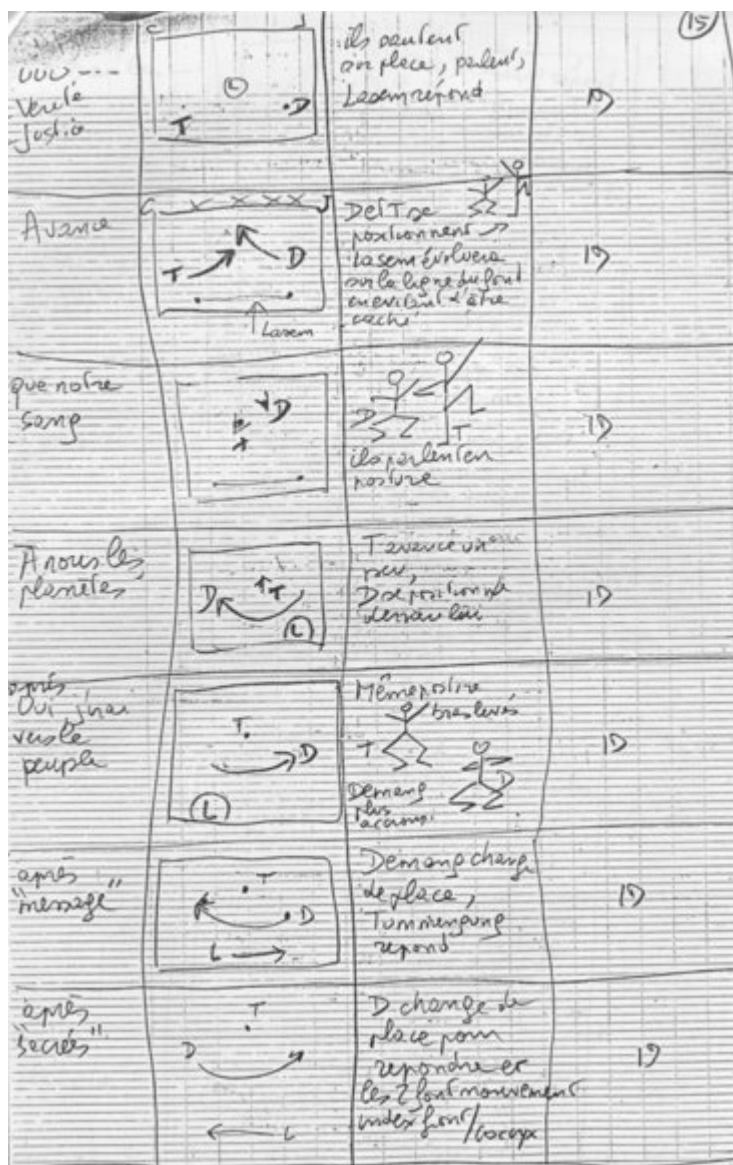 15
Verité
Justice
C J
L
T D
ils sautent
sur place, parlent,
Lasem répond
19
Avance
C X X X X X J
T D
Lasem
D et T se
positionnent
Lasem évoluera
sur la ligne du fond
en evitant d'être
caché
19
que notre
sang
D
D
T
ils parlent en
posture
19
A nous les
planètes
D T
L
T avance un
peu,
D se positionne
19
après
Oui j'irai
vers le
peuple
T
D
L
Même posture
bras levés
T
D
Demang
plus
accroupi
19
après
"message"
T
D
L
Demang change
de place,
Tummengung
repond
19
après
"sacrés"
T
D
L
D change de
place pour
repondre et
les 2 font mouvement
index front/coccyx
19